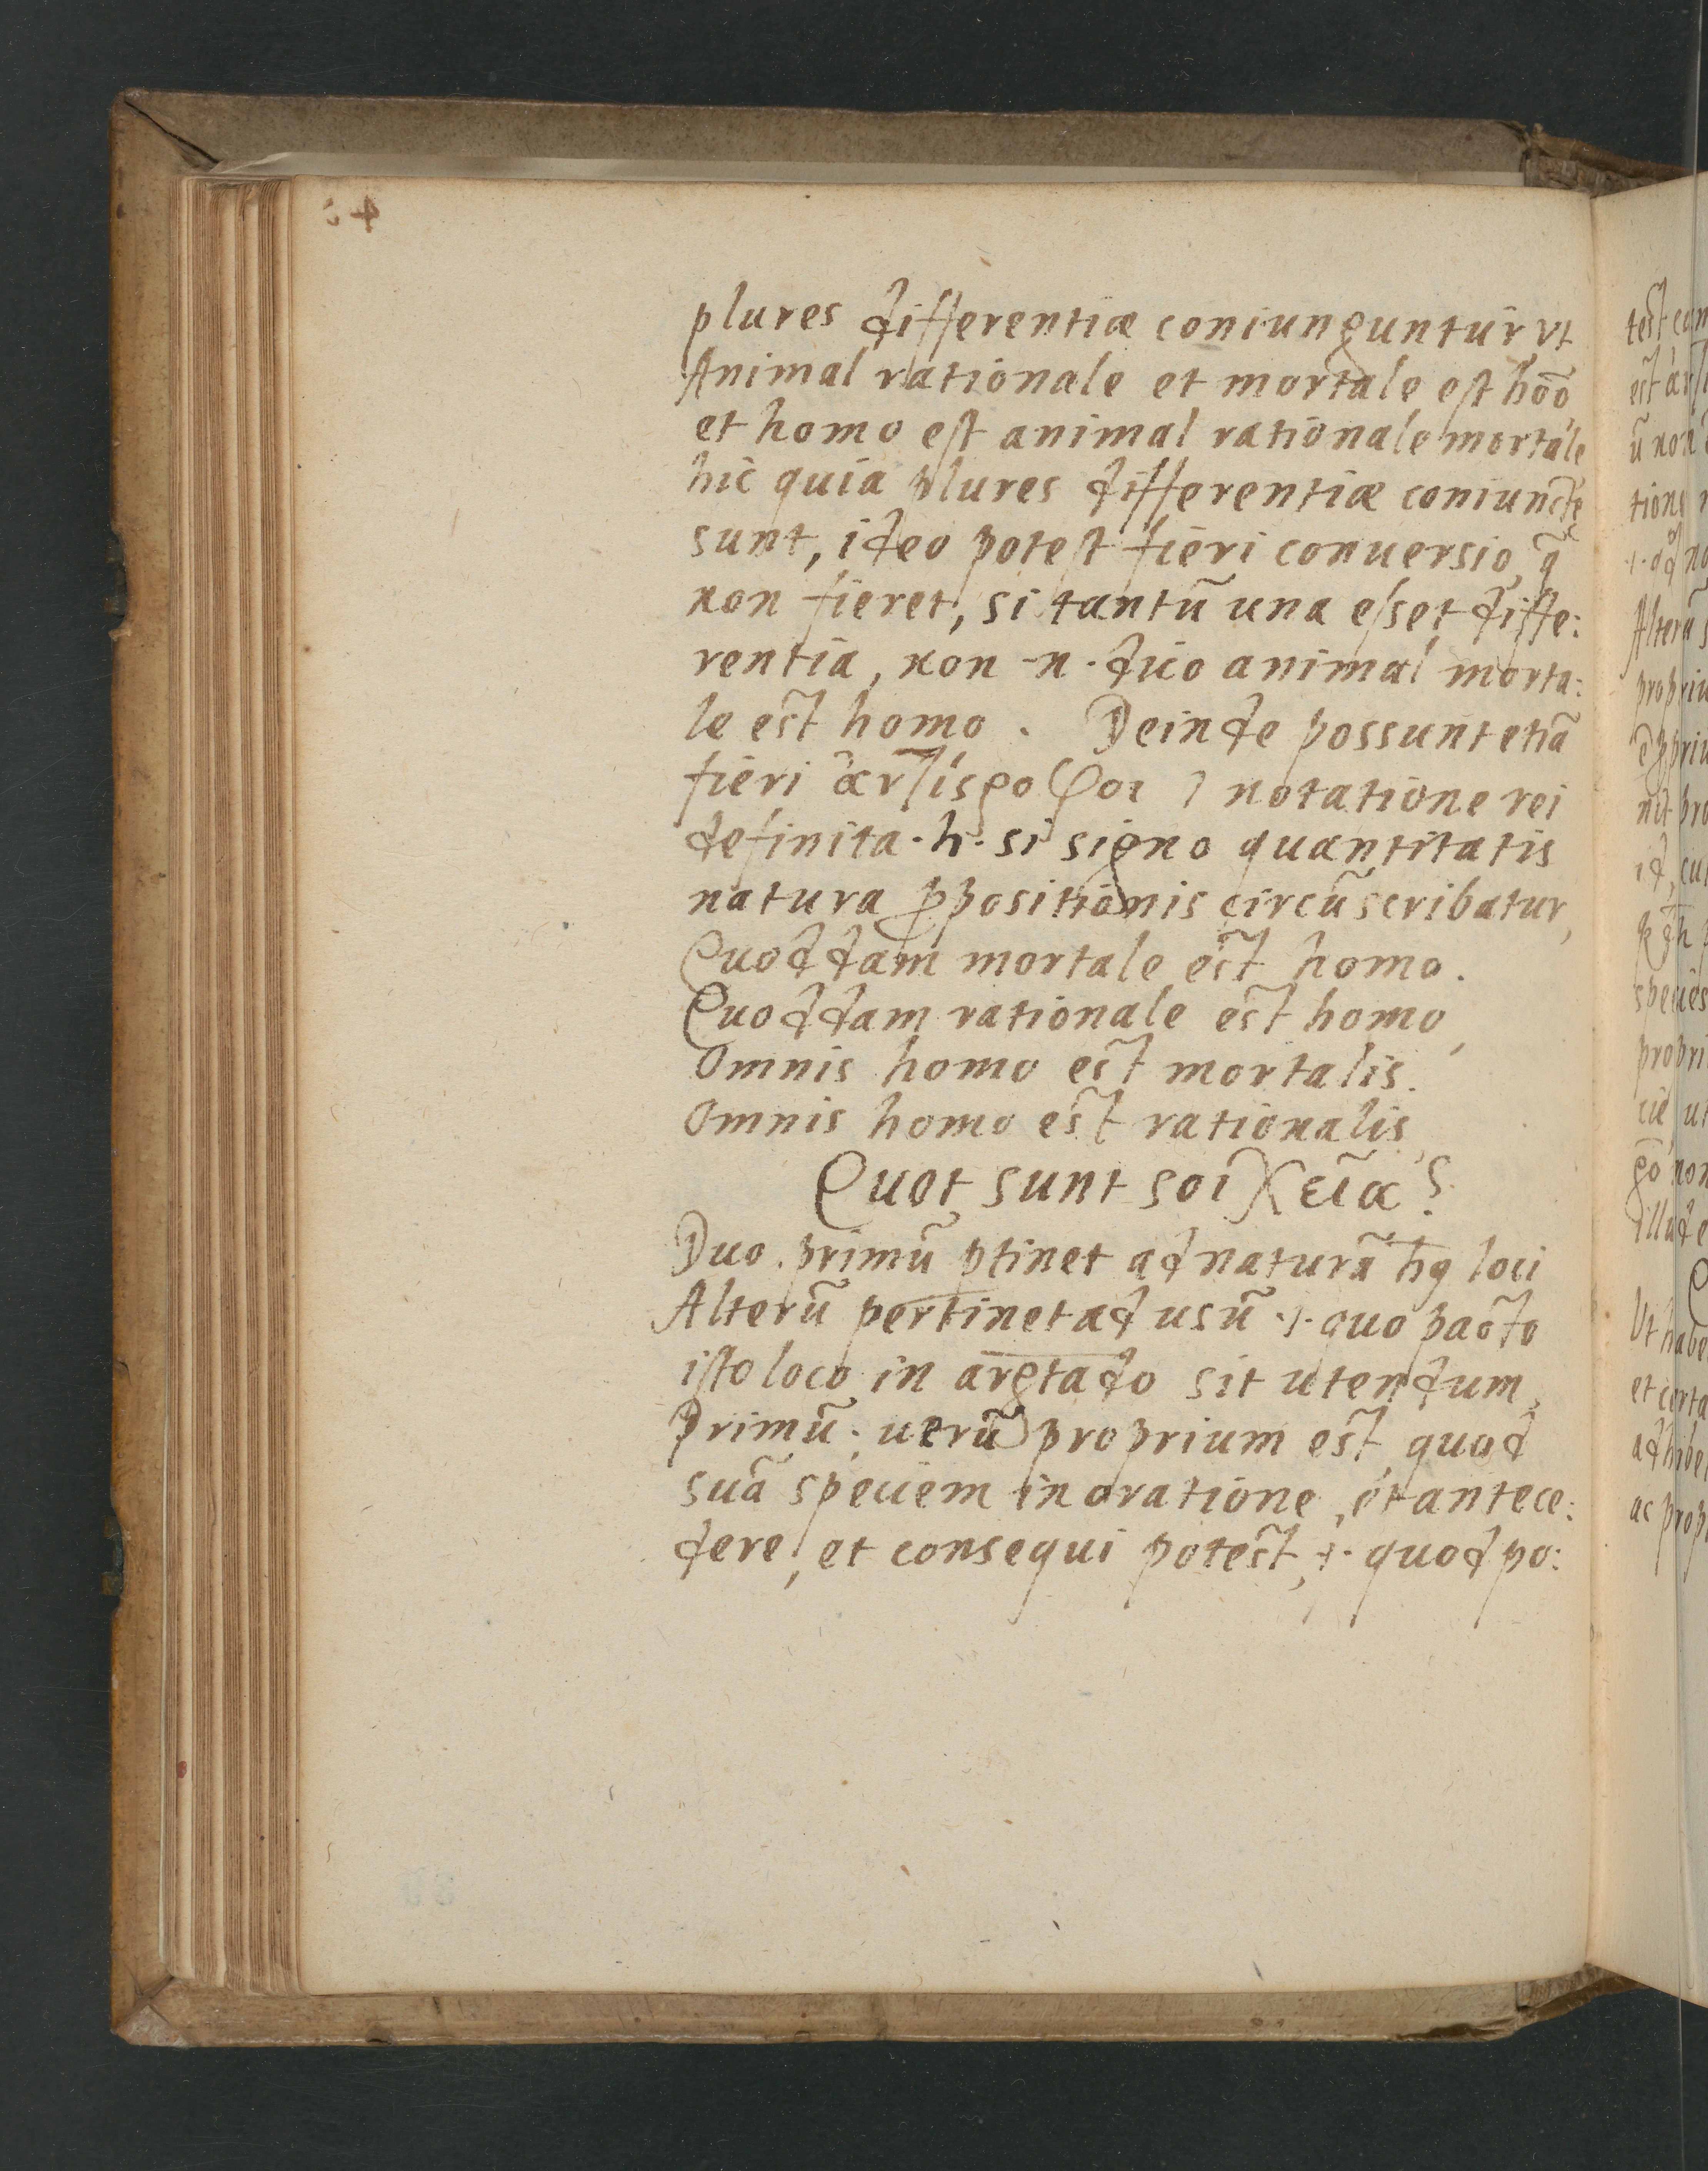 plures differentiæ coniunguntur vt
Animal rationale et mortale est hōō
et homo est animal rationale mortale
hic quia plures differentiæ coniunctę
sunt, ideo potest fieri conuersio, q̃
non fieret, si tantũ una esset diffe:
rentia, non ·n· dico animal morta:
le est homo. Deinde possunt etiã
fieri notatione rei
definita ·h· si signo quantitatis
natura ꝓpositionis circũscribatur,
Quoddam mortale est homo.
Quoddam rationale est homo,
Omnis homo est mortalis.
Omnis homo est rationalis,
Quot sunt σοιχεῖα?
Duo. primũ ptinet ad naturã hꝯ loci
Alterũ pertinet ad usũ ·i· quo pacto
isto loco in argtado sit utendum,
Primũ: uerũ proprium est, quod
suã speciem in oratione, et antece:
dere, et consequi potest, ·i· quod po: